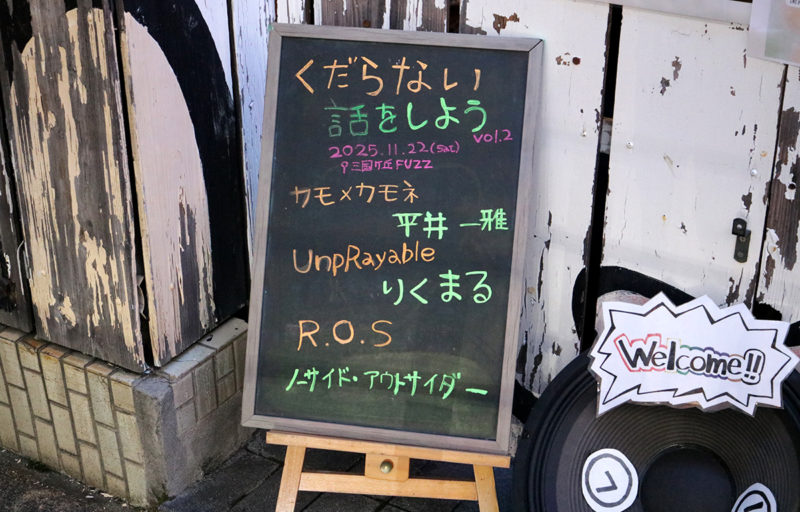 くだらない
話をしよう
vol.2
2025.11.22(sat)
三国ケ丘FUZZ
カモ×カモネ
平井 一雅
UnpRayable
りくまる
R.O.S
ノーサイド・アウトサイダー
Welcome!!